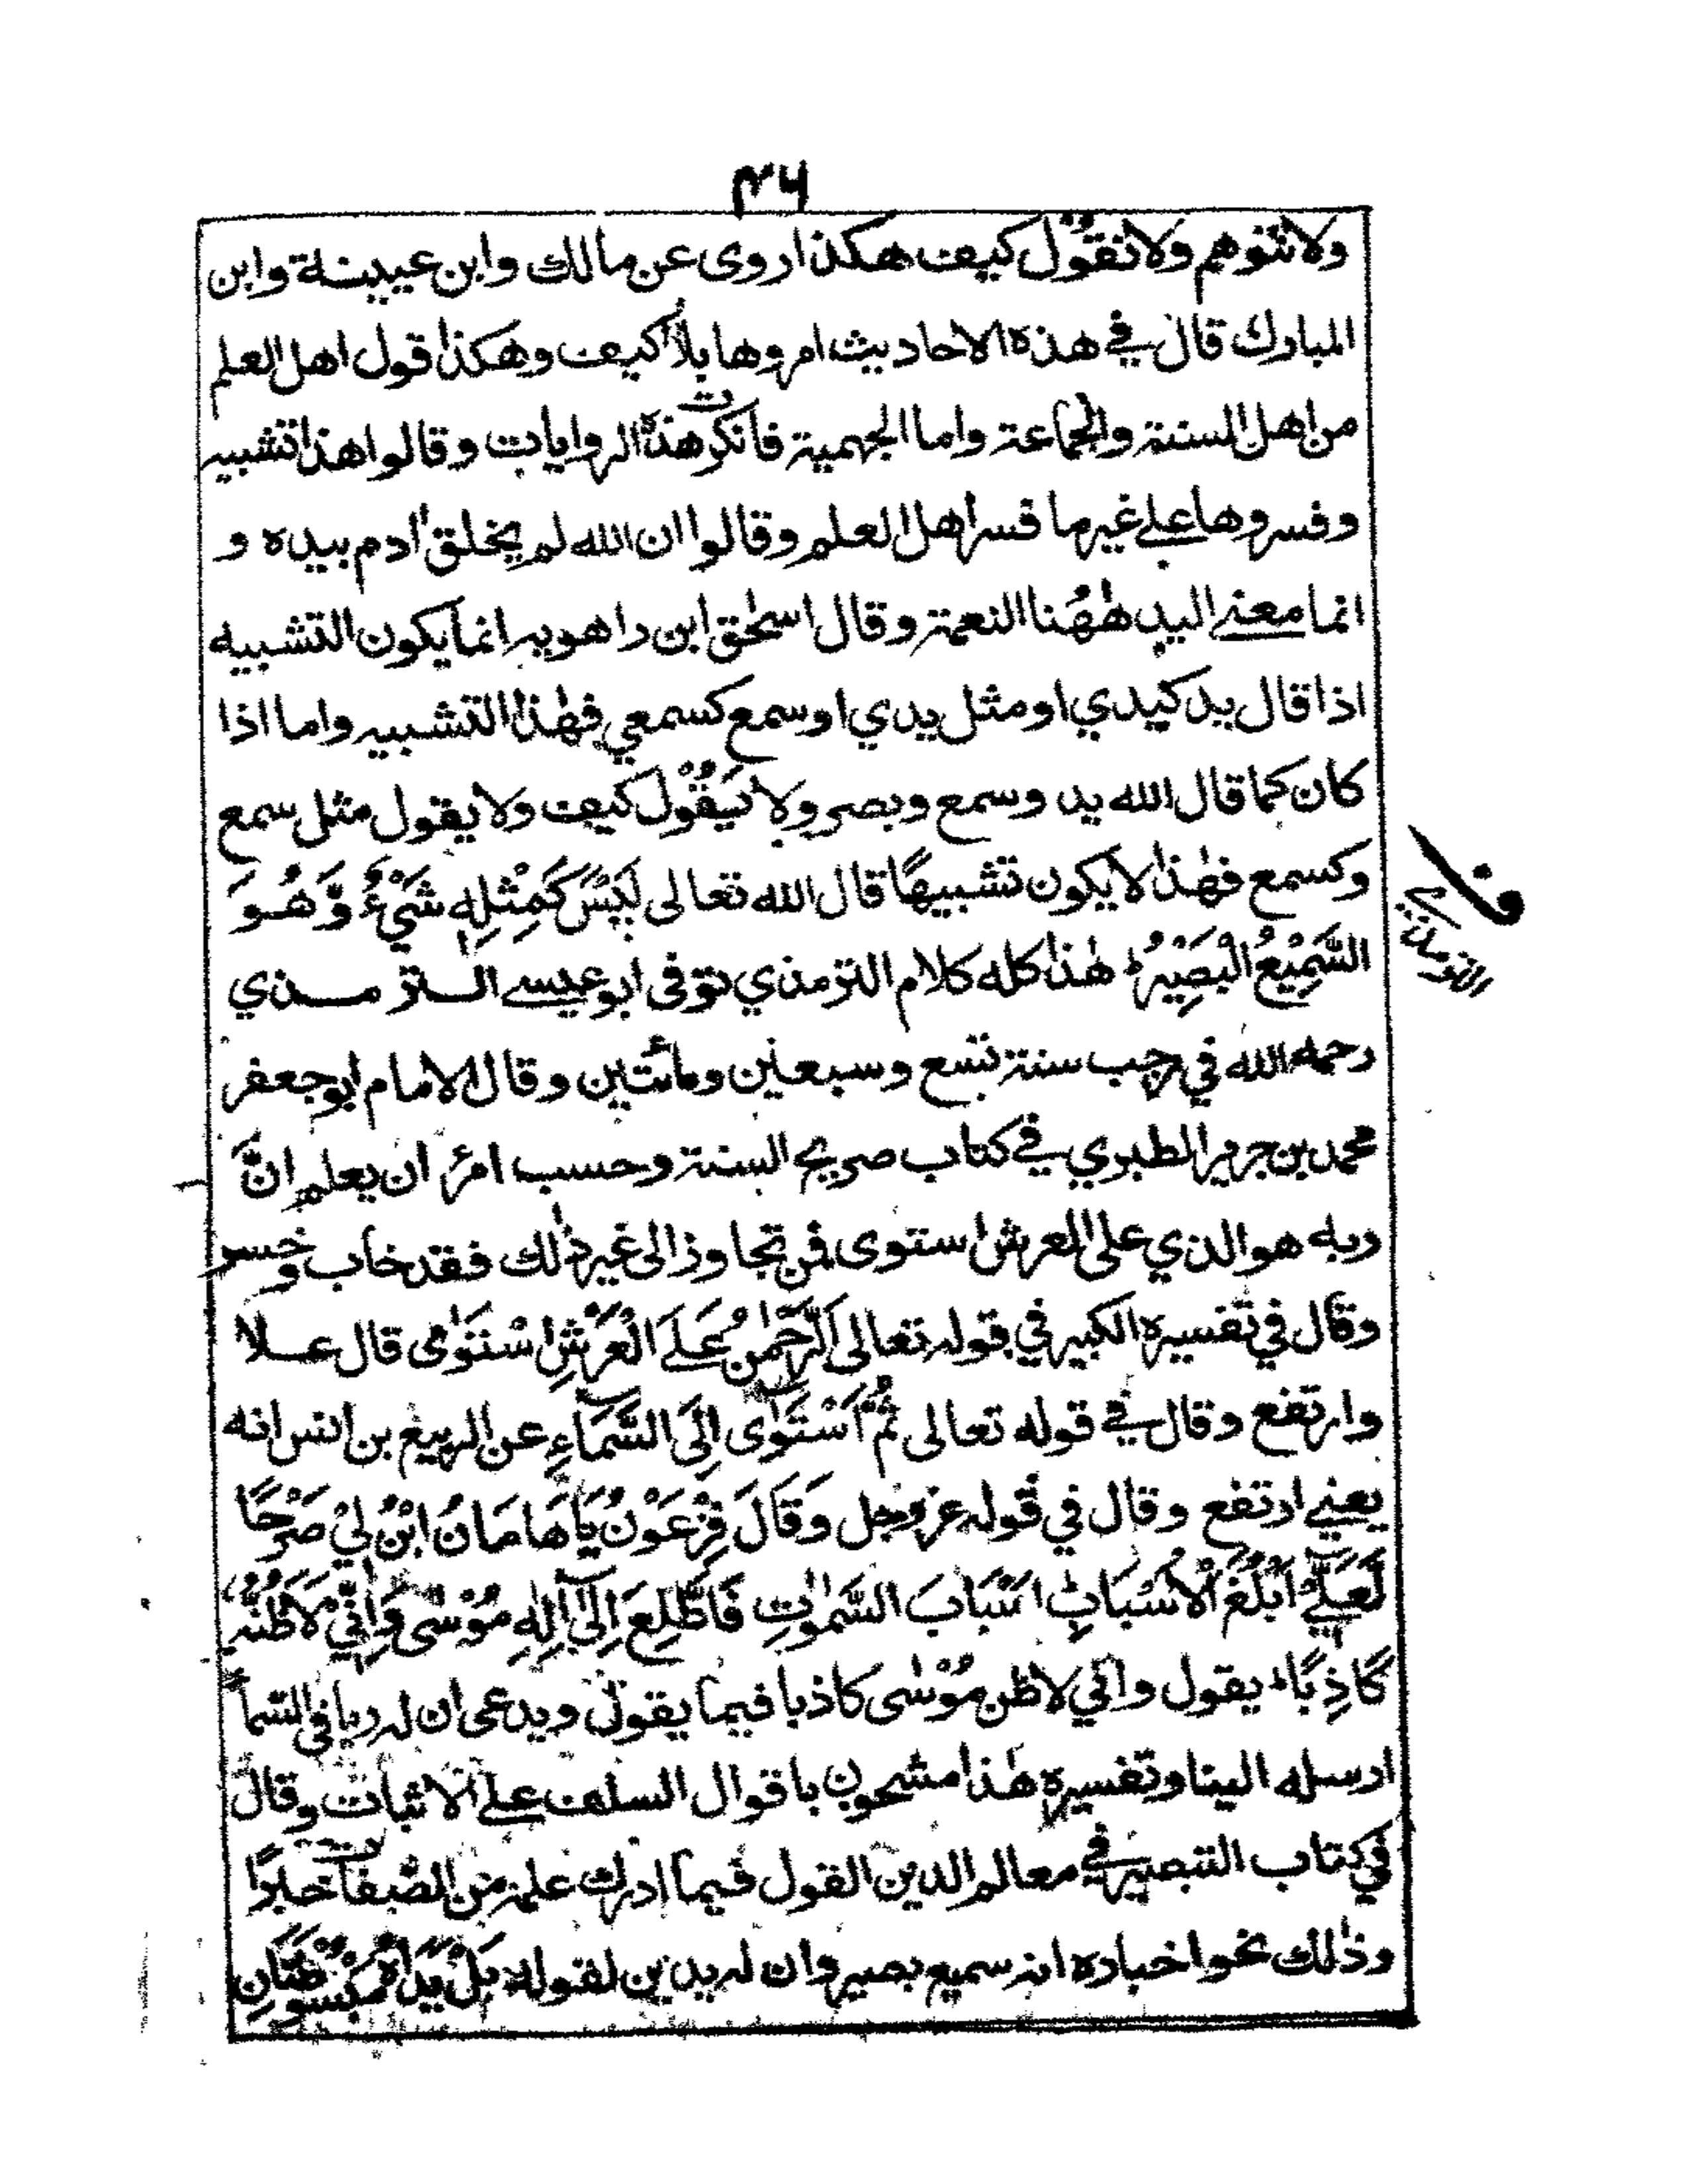 ٤٦
ولا نتوهم ولا نقُوْل كيف هكذا روى عن مالك وابن عيينة وابن
المبارك قال في هذه الاحاديث امروها بلا كيف وهكذا قول اهل العلم
من اهل السنة والجماعة واما الجهمية فانكرت هذه الروايات وقالوا هذا تشبيه
وفسروها على غير ما فسر اهل العلم وقالوا ان الله لم يخلق ادم بيده و
انما معنى اليد هٰهُنا النعمة وقال اسحٰق ابن راهويه انما يكون التشبيه
اذا قال يد كيدي او مثل يدي او سمع كسمعي فهٰذا التشبيه واما اذا
كان كما قال الله يد وسمع وبصر ولا يَقُوْل كيف ولا يقول مثل سمع
وكسمع فهٰذا لا يكون تشبيهًا قال الله تعالى لَيْسَ كَمِثْلِهٖ شَيْءٌ وَّهُوَ
السَّمِيْعُ الْبَصِيْرُ هٰذا كله كلام الترمذي توفى ابو عيسى الترمذي
رحمه الله في رجب سنة تسع وسبعين ومائتين وقال الامام ابو جعفر
محمد بن جرير الطبري في كتاب صريح السنة وحسب امرئ ان يعلم انَّ
ربه هو الذي على العرش استوى فمن تجاوز الى غير ذٰلك فقد خاب وخسر
وقال في تفسيره الكبير في قوله تعالى اَلرَّحْمٰنُ عَلَى الْعَرْشِ اسْتَوٰى قال علا
وارتفع وقال في قوله تعالى ثُمَّ اسْتَوٰى اِلَى السَّمَاءِ عن الربيع بن انس انه
يعني ارتفع وقال في قوله عز وجل وَقَالَ فِرْعَوْنُ يَا هَامَانُ ابْنُ لِيْ صَرْحًا
لَّعَلِّيْ اَبْلُغُ الْاَسْبَابِ اَسْبَابَ السَّمٰوٰتِ فَاَطَّلِعَ اِلٰى اِلٰهِ مُوْسٰى وَاِنِّيْ لَاَظُنُّهٗ
كَاذِبًا يقول واني لاظن مُوْسٰى كاذبا فيما يقول ويدعى ان له ربا في السّماء
ارسله الينا وتفسيره هٰذا مشحون باقوال السلف على الاثبات وقال
في كتاب التبصير في معالم الدين القول فيما ادرك علمه من الصّفات خبرًا
وذٰلك نحو اخباره انه سميع بصير وان له يدين لقوله بَلْ يَدَاهُ مَبْسُوْطَتَانِ